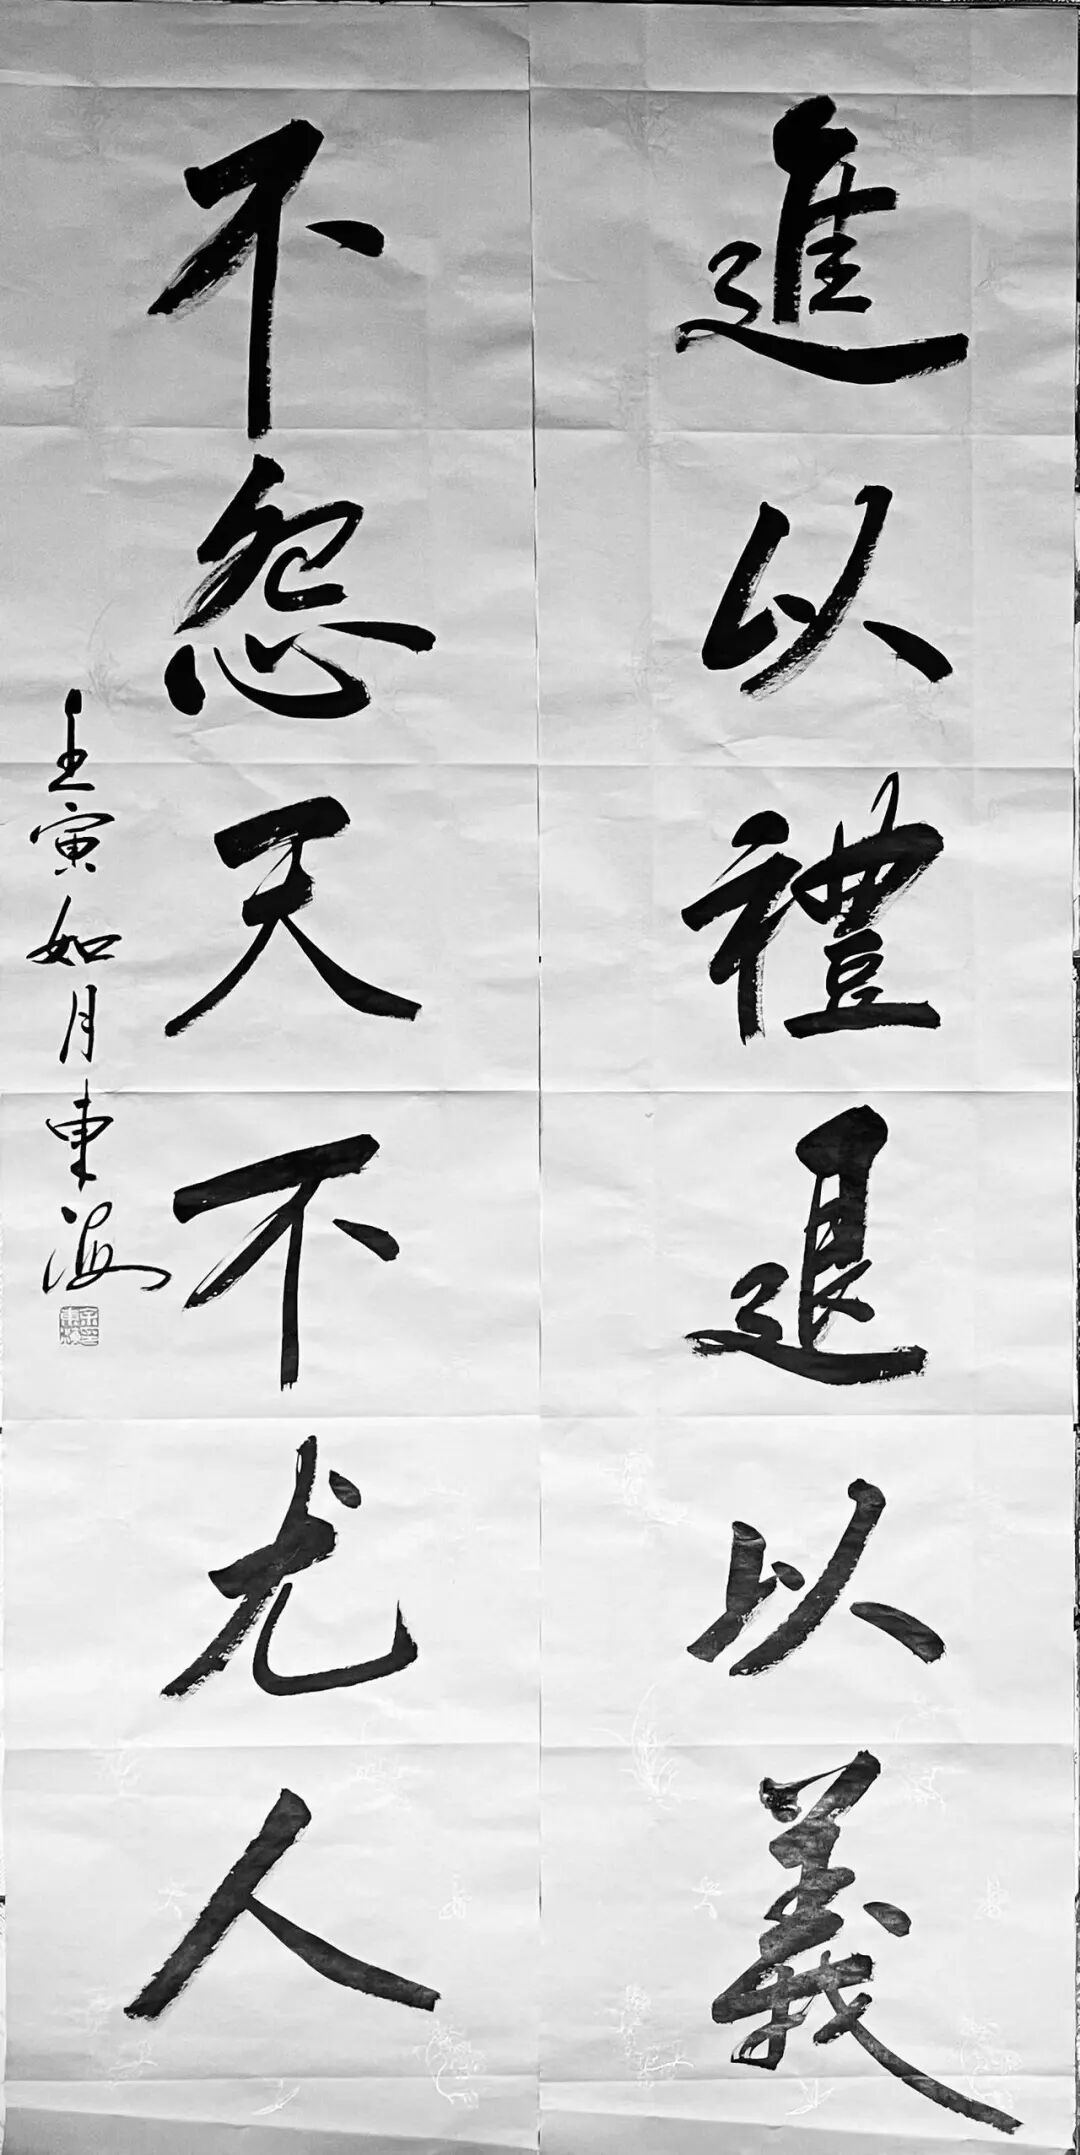 進以禮退以義
不怨天不尤人
壬寅如月東海